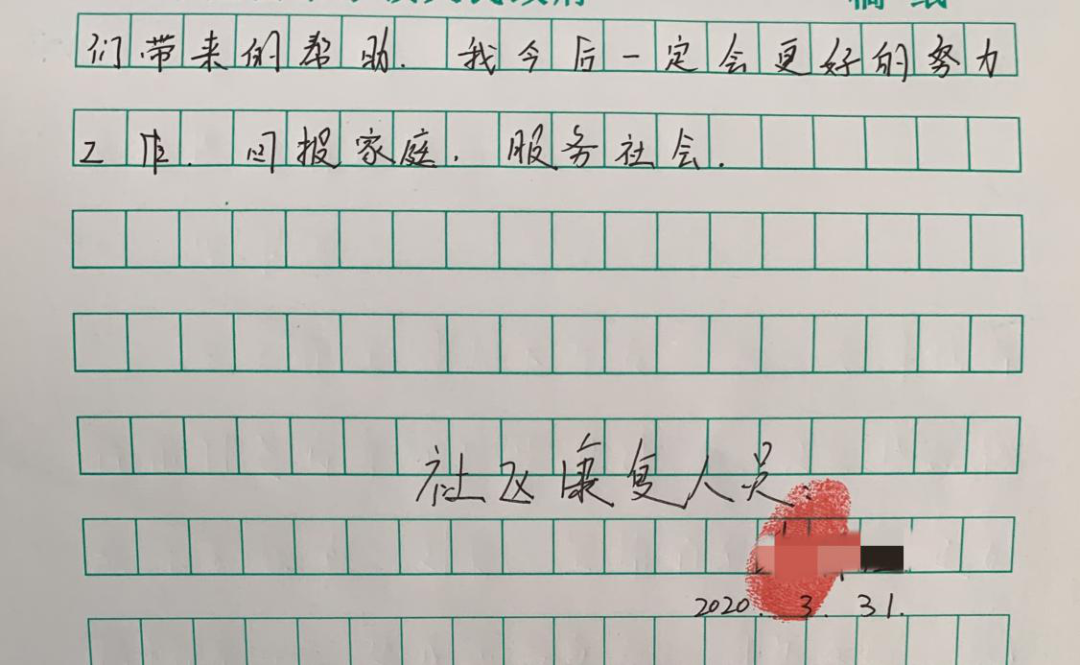 稿纸
们带来的帮助. 我今后一定会更好的努力
工作. 回报家庭. 服务社会.
社区康复人员:
2020. 3. 31.